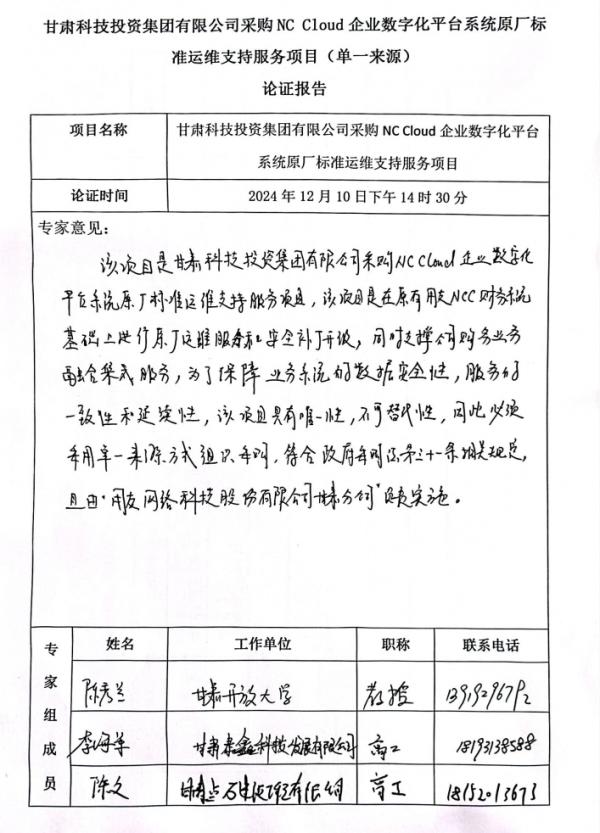 甘肃科技投资集团有限公司采购 NC Cloud 企业数字化平台系统原厂标
准运维支持服务项目（单一来源）
论证报告
项目名称 甘肃科技投资集团有限公司采购 NC Cloud 企业数字化平台
系统原厂标准运维支持服务项目
论证时间 2024 年 12 月 10 日下午 14 时 30 分
专家意见：
该项目是甘肃科技投资集团有限公司采购NC Cloud 企业数字化
平台系统原厂标准运维支持服务项目，该项目是在原有用友NCC财务系统
基础上进行原厂运维服务和安全补丁升级，同时支撑公司购务业务
融合集成服务，为了保障业务系统的数据安全性，服务的
一致性和延续性，该项目具有唯一性，不可替代性，因此必须
采用单一来源方式组织采购，符合政府采购法第三十一条相关规定，
且由“用友网络科技股份有限公司甘肃分公司”负责实施。
专家组成员
姓名 工作单位 职称 联系电话
陈秀兰 甘肃开放大学 教授
李海军 科技发展有限公司 高工 18193138588
陈文 有限公司 高工 18152013673